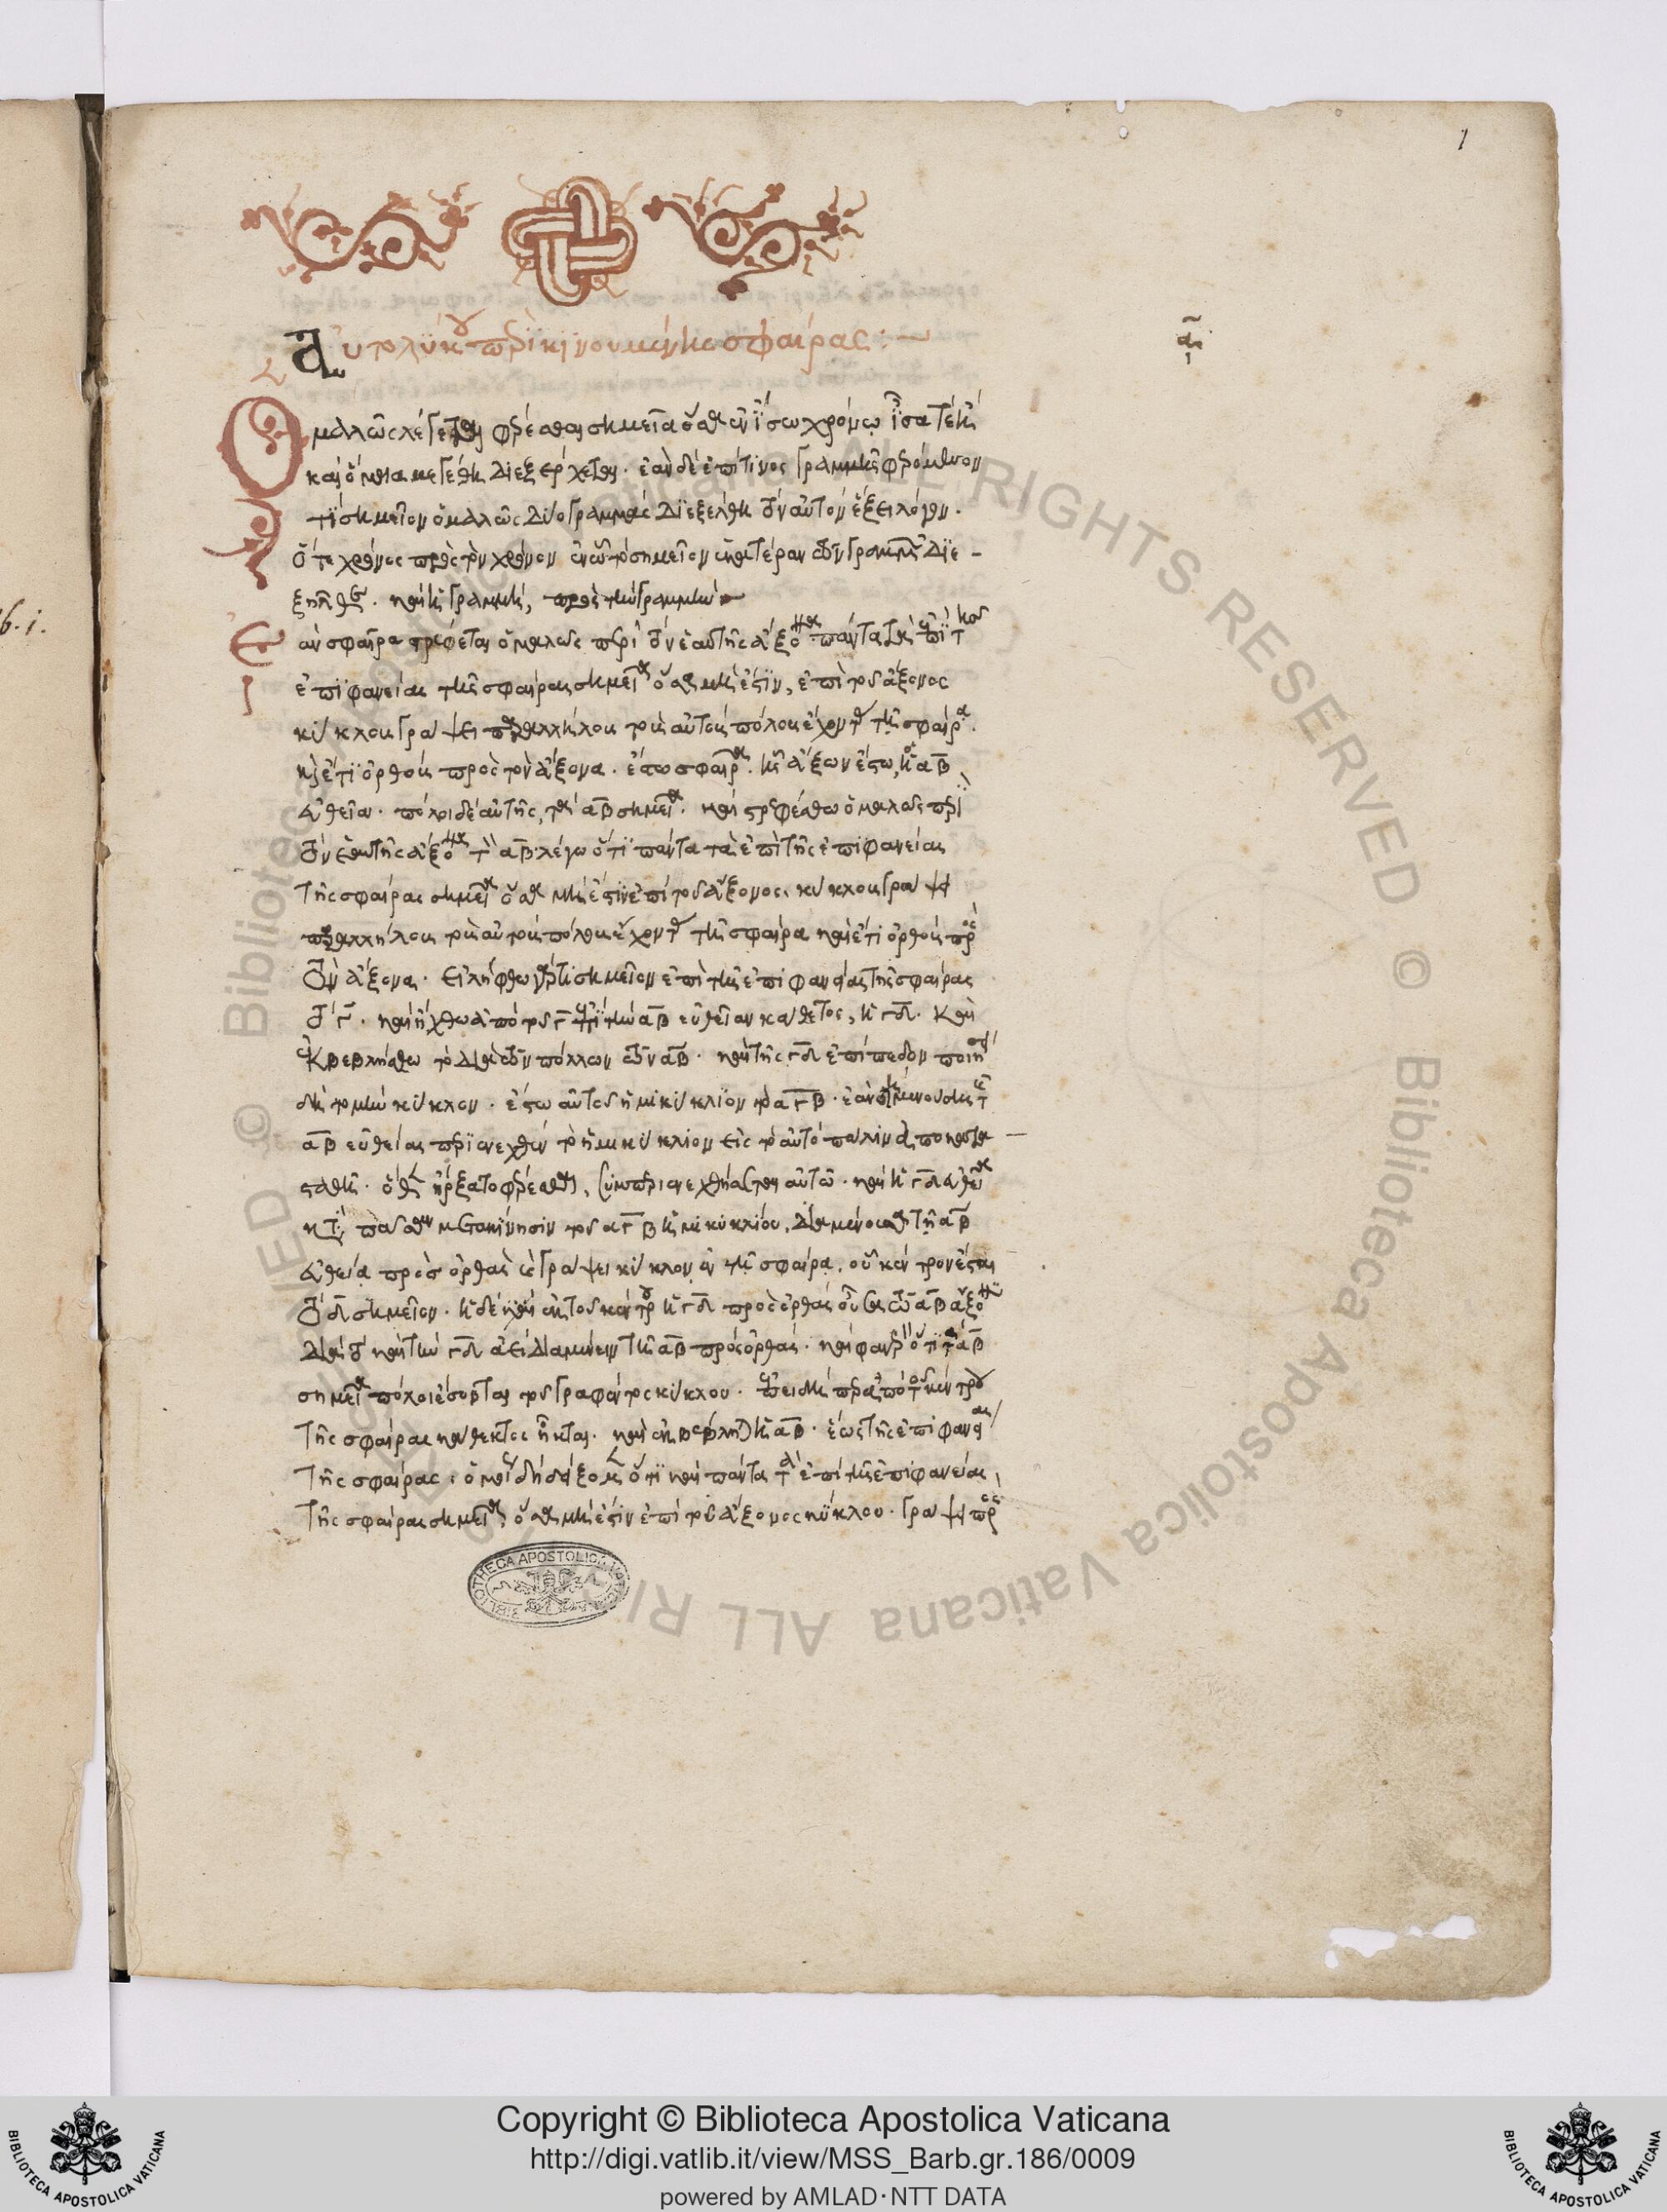 1
Αὐτολύκου περὶ κϊνουμένης σφαίρας :—
Ὁμαλῶς λέγεται φέρεσθαι σημεῖα ὅσα ἐν ἴσω χρόνῳ ἴσα τὲ κ
καὶ ὅμοια μεγέθη διεξέρχεται. ἐὰν δὲ ἐπί τϊνος γραμμῆς φερόμενον
τϊ σημεῖον ὁμαλῶς δύο γραμμὰς διεξέλθη τὸν αὐτὸν ἕξει λόγον.
ὅ τε χρόνος πρὸς τὸν χρόνον ἐν ᾧ τὸ σημεῖον ἑκατέραν τῶν γραμμῶν διε-
ξῆλθε. καὶ ἡ γραμμὴ, πρὸς τὴν γραμμὴν
Ἐὰν σφαῖρα στρέφεται ὁμαλῶς περὶ τὸν ἑαυτῆς ἄξονα πάντα τὰ ἐπὶ τῆς
ἐπιφανείας τῆς σφαίρας σημεῖα ὅσα μή ἐστϊν, ἐπὶ τοῦ ἄξονος
κύκλους γράψει παραλλήλους τοὺς αὐτοὺς πόλους ἔχοντας τῇ σφαίρα.
καὶ ἔτι ὀρθοὺς πρὸς τὸν ἄξονα. ἔστω σφαῖρα. ἧς ἄξων ἔστω, ἡ αβ
εὐθεῖα. πόλοι δὲ αὐτῆς, τὰ αβ σημεῖα. καὶ στρεφέσθω ὁμαλῶς περὶ
τὸν ἑαυτῆς ἄξονα τὸν αβ. λέγω ὅτϊ πάντα τὰ ἐπὶ τῆς ἐπιφανείας
τῆς σφαίρας σημεῖα ὅσα μή ἐστϊν ἐπὶ τοῦ ἄξονος, κύκλους γράψει
παραλλήλους τοὺς αὐτοὺς πόλους ἔχοντας τῇ σφαίρα καὶ ἔτι ὀρθοὺς πρὸς
τὸν ἄξονα. εἰλήφθω γάρ τι σημεῖον ἐπὶ τῆς ἐπιφανείας τῆς σφαίρας
τὸ γ. καὶ ἤχθω ἀπὸ τοῦ γ ἐπὶ τὴν αβ εὐθεῖαν κάθετος, ἡ γδ. καὶ
ἐκβεβλήσθω τὸ διὰ τῶν πόλλων τῶν αβ. καὶ τῆς γδ ἐπίπεδον ποιήσει
δὴ τομὴν κύκλον. ἔστω αὐτοῦ ἡμικύκλϊον τὸ αγβ. ἐὰν δὴ μενούσης τῆς
αβ εὐθείας περϊενεχθὲν τὸ ἡμικύκλιον εἰς τὸ αὐτὸ πάλιν ἀποκατα
σταθῆ. ὅθεν ἤρξατο φέρεσθαι, συμπεριενεχθήσεται αὐτῶ. καὶ ἡ γδ εὐθεῖα
κατὰ πᾶσαν μετακίνησιν τοῦ αγβ ἡμικυκλίου, διαμένουσα τῇ αβ
εὐθεία πρὸς ὀρθὰς καὶ γράψει κύκλον ἐν τῇ σφαίρα, οὗ κέντρον ἔσται
τὸ δ σημεῖον. ἡ δὲ ἐκ τοῦ κέντρου ἡ γδ πρὸς ὀρθὰς οὖσα τῷ αβ ἄξονι
διὰ τὸ καὶ τὴν γδ ἀεὶ διαμένειν τῇ αβ πρὸς ὀρθάς. καὶ φανερὸν ὅτϊ τὰ αβ
σημεῖα πόλοι ἔσονται τοῦ γραφέντος κύκλου. ἐπειδήπερ ἀπὸ τοῦ κέντρου
τῆς σφαίρας κάθετος ἦκται. καὶ ἐκβέβληται ἡ αβ. ἕως τῆς ἐπιφανείας
τῆς σφαίρας. ὁμοίως δὴ δείξομεν ὅτϊ καὶ πάντα τὰ ἐπὶ τῆς ἐπιφανείας
τῆς σφαίρας σημεῖα, ὅσα μή ἐστιν ἐπὶ τοῦ ἄξονος κύκλου. γράψει πρὸς
BIBLIOTHECA APOSTOLICA
© Biblioteca Apostolica Vaticana ALL RIGHTS RESERVED © Biblioteca Apostolica Vaticana ALL RI
Copyright © Biblioteca Apostolica Vaticana
http://digi.vatlib.it/view/MSS_Barb.gr.186/0009
powered by AMLAD·NTT DATA
BIBLIOTECA APOSTOLICA VATICANA
BIBLIOTECA APOSTOLICA VATICANA